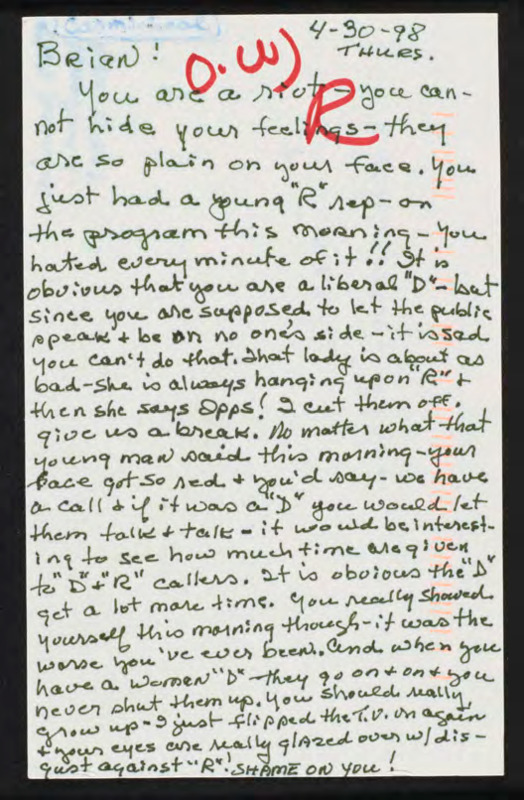 (Carmichael)
4-30-98
THURS.
O.W)
R
Brian!
You are a riot - you can-
not hide your feelings - they
are so plain on your face. You
just had a young "R" rep - on
the program this morning - you
hated every minute of it!! It is
obvious that you are a liberal "D" - but
since you are supposed to let the public
speak & be on no one's side - it is sad
you can't do that. That lady is about as
bad - she is always hanging upon "R" &
then she says Opps! I cut them off.
give us a break. No matter what that
young man said this morning - your
face got so red & you'd say - we have
a call & if it was a "D" you would let
them talk & talk - it would be interest-
ing to see how much time are given
to "D" & "R" callers. It is obvious the "D"
get a lot more time. You really showed
yourself this morning though - it was the
worse you've ever been. And when you
have a women "D" - they go on & on & you
never shut them up. You should really
grow up - I just flipped the T.V. on again
& your eyes are really glazed over w/ dis-
gust against "R"! SHAME ON YOU!